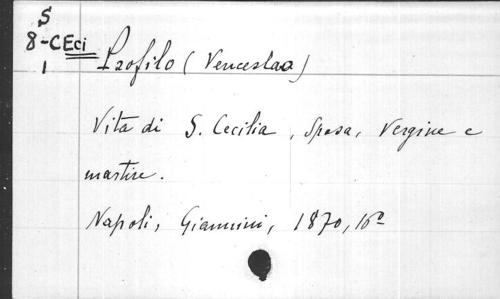 S
8-CEci
1
Profilo (Venceslao)
Vita di S. Cecilia, Sposa, Vergine e
martire.
Napoli, Giannini, 1870, 16º